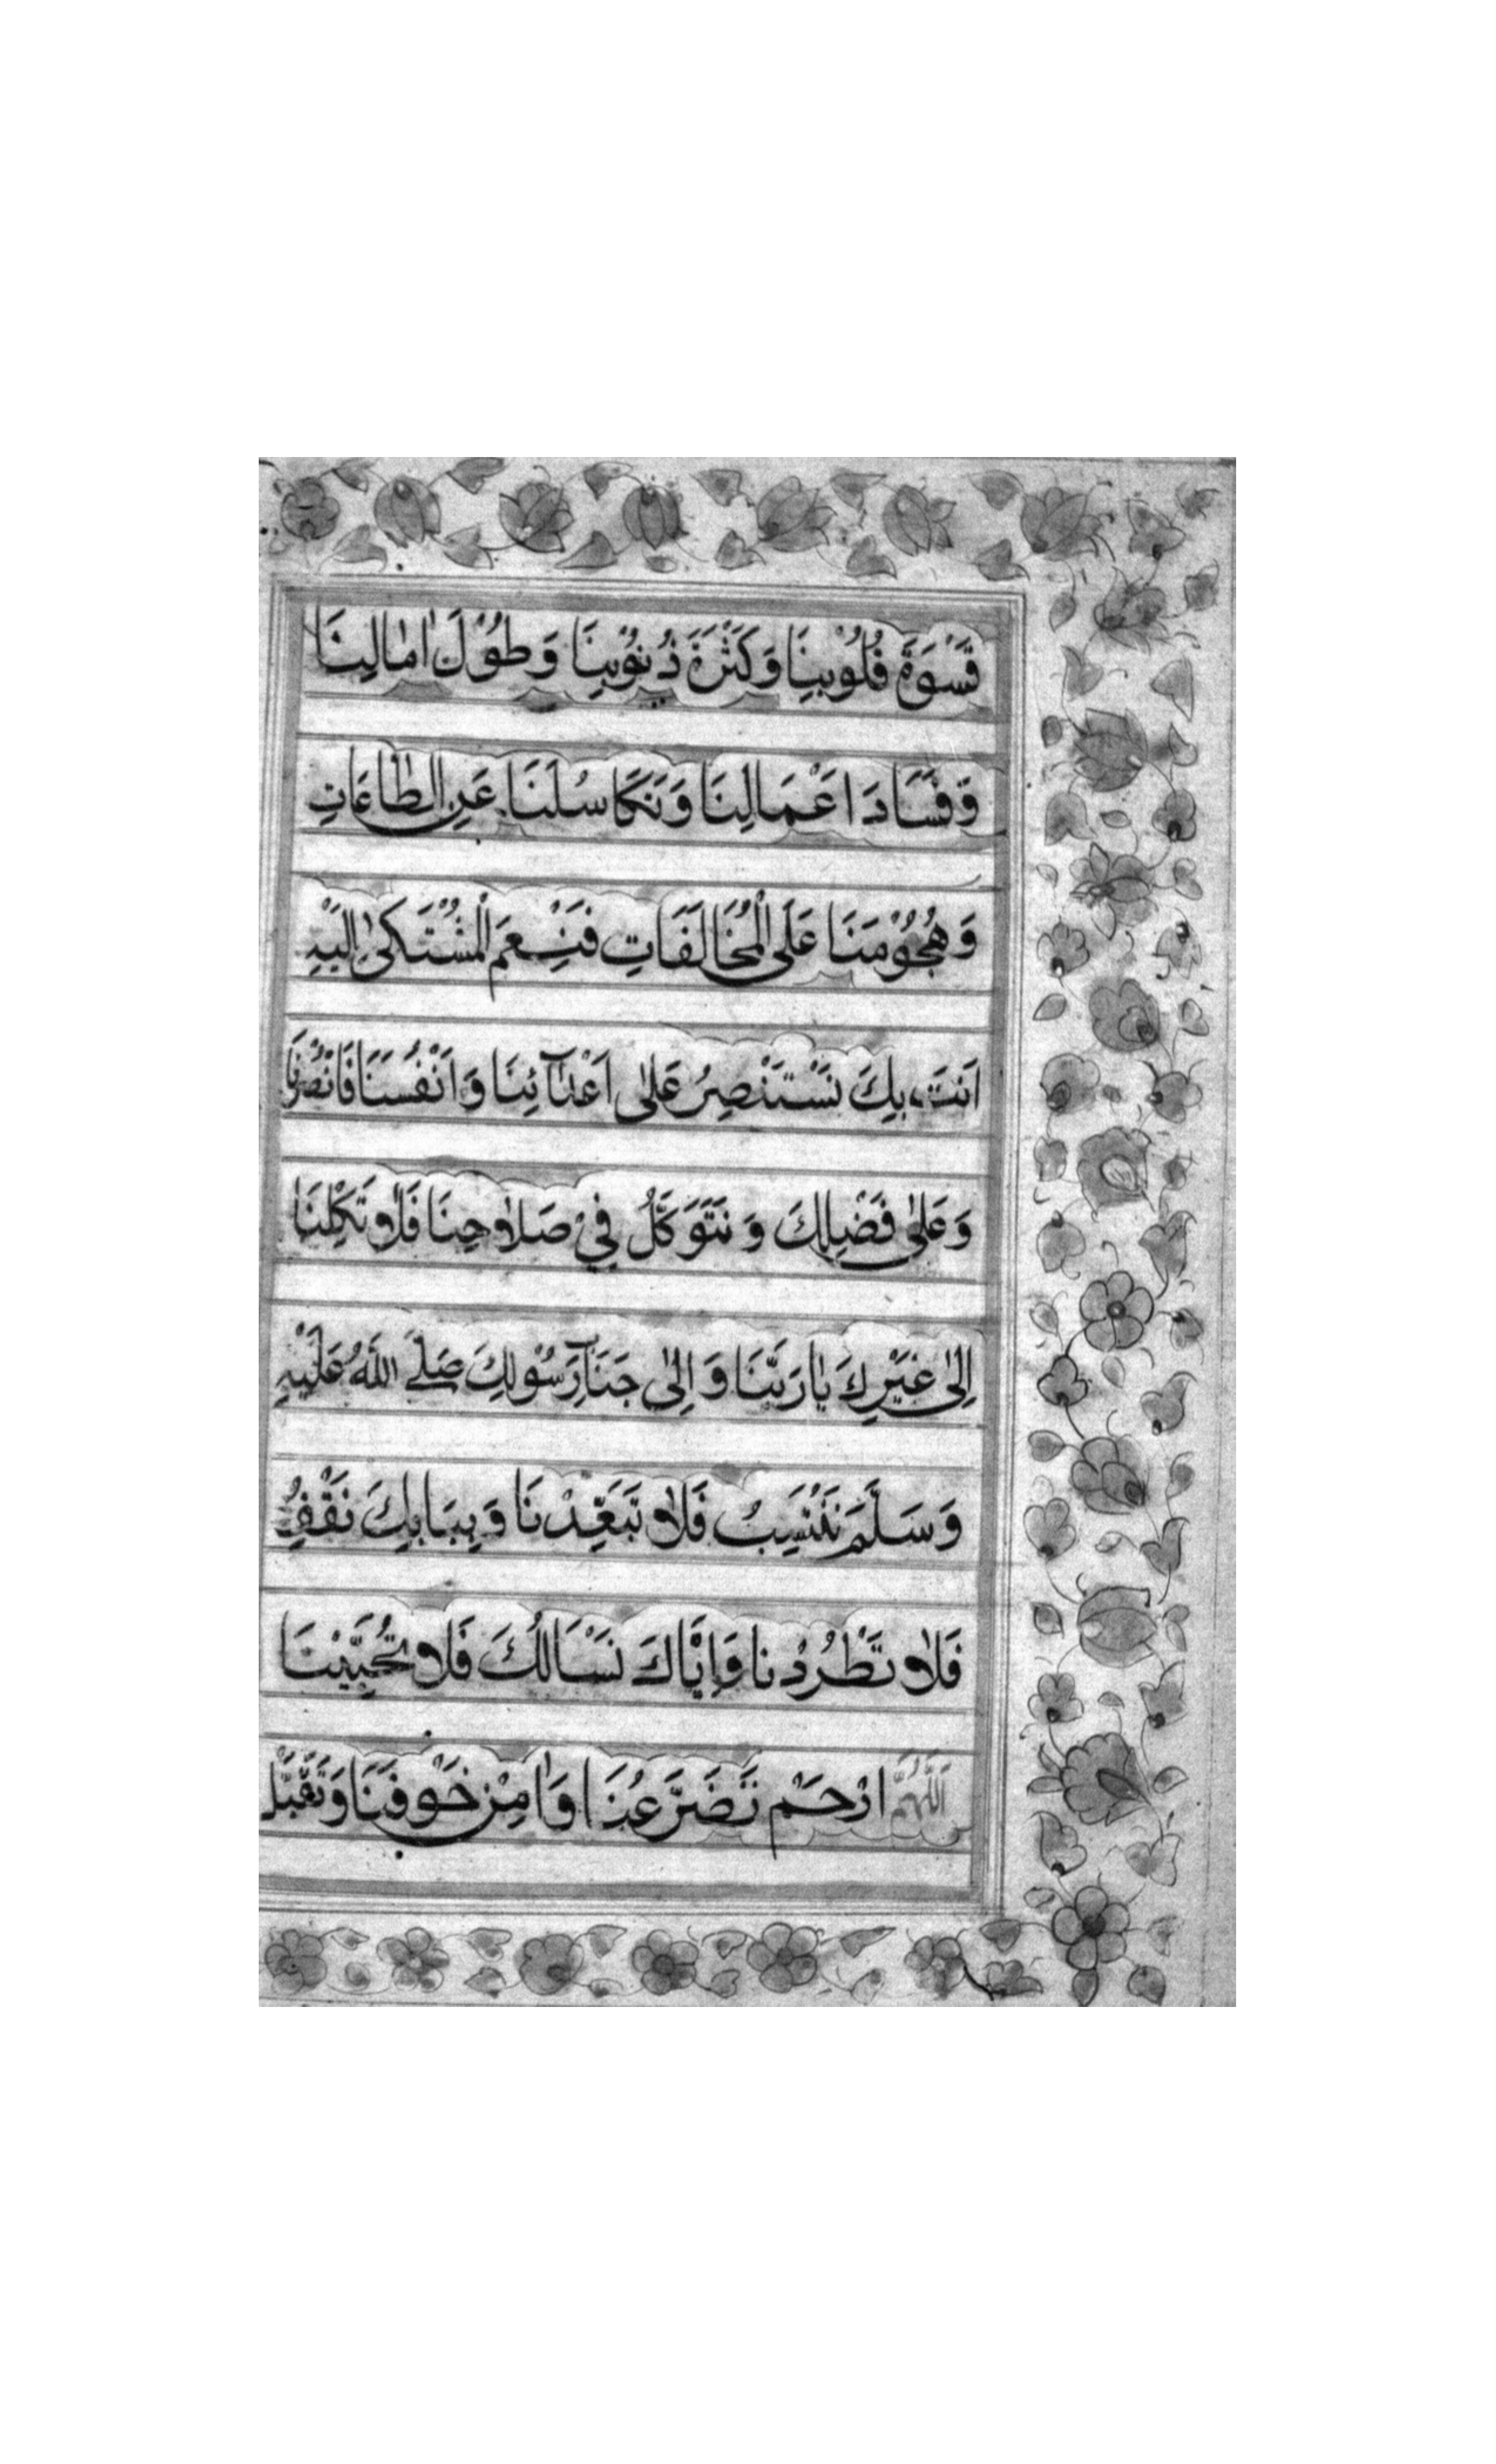 قَسْوَةَ قُلُوْبِنَا وَكَثْرَةَ ذُنُوْبِنَا وَطُوْلَ اٰمَالِنَا
وَفَسَادَ اَعْمَالِنَا وَتَكَاسُلَنَا عَنِ الطَّاعَاتِ
وَهُجُوْمَنَا عَلَى الْمُخَالَفَاتِ فَنِعْمَ الْمُشْتَكٰى اِلَيْهِ
اَنْتَ بِكَ نَسْتَنْصِرُ عَلٰى اَعْدَآئِنَا وَاَنْفُسَنَا فَانْصُرْنَا
وَعَلٰى فَضْلِكَ وَنَتَوَكَّلُ فِيْ صَلَاحِنَا فَلَا تَكِلْنَا
اِلٰى غَيْرِكَ يَا رَبَّنَا وَاِلٰى جَنَابِ رَسُوْلِكَ صَلَّى اللهُ عَلَيْهِ
وَسَلَّمَ نَنْتَسِبُ فَلَا تُبَعِّدْنَا وَبِبَابِكَ نَقِفُ
فَلَا تَطْرُدْنَا وَاِيَّاكَ نَسْاَلُكَ فَلَا تُخَيِّبْنَا
اَللّٰهُمَّ ارْحَمْ تَضَرُّعَنَا وَاٰمِنْ خَوْفَنَا وَتَقَبَّلْ